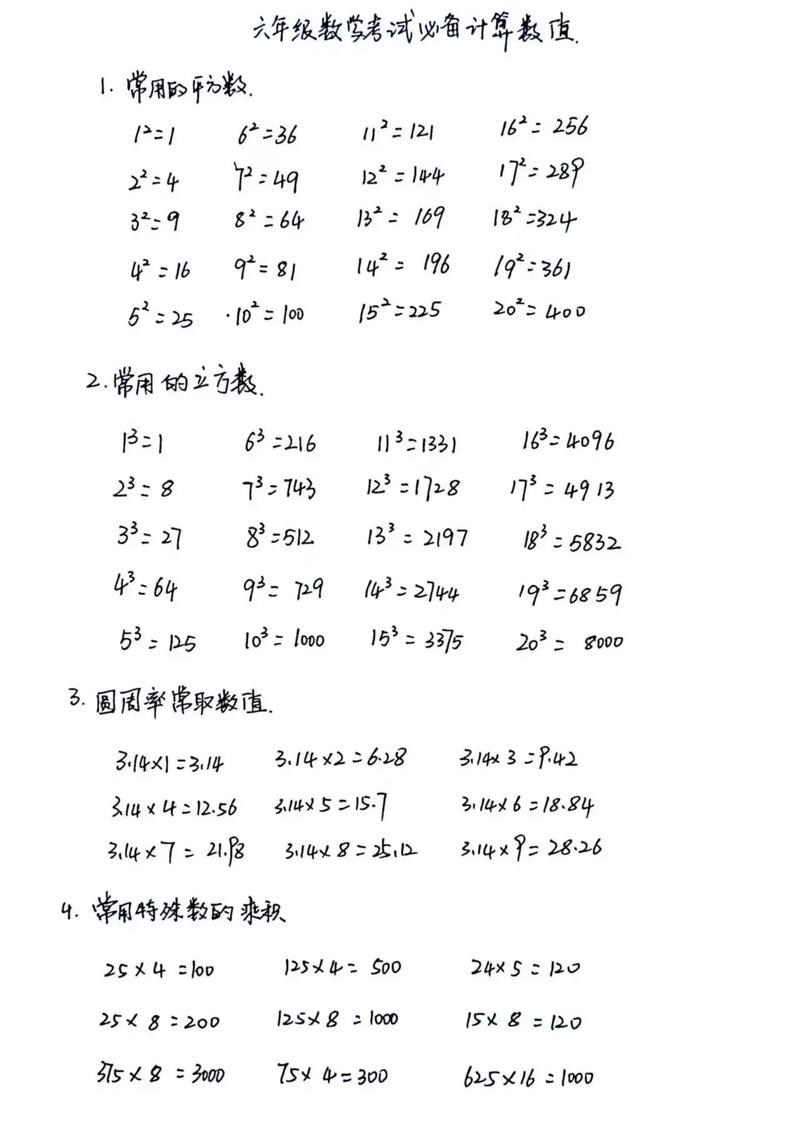 六年级数学考试必备计算数值.
1. 常用的平方数.
1²=1 6²=36 11²=121 16²=256
2²=4 7²=49 12²=144 17²=289
3²=9 8²=64 13²=169 18²=324
4²=16 9²=81 14²=196 19²=361
5²=25 ·10²=100 15²=225 20²=400
2. 常用的立方数.
1³=1 6³=216 11³=1331 16³=4096
2³=8 7³=743 12³=1728 17³=4913
3³=27 8³=512 13³=2197 18³=5832
4³=64 9³=729 14³=2744 19³=6859
5³=125 10³=1000 15³=3375 20³=8000
3. 圆周率常取数值.
3.14×1=3.14 3.14×2=6.28 3.14×3=9.42
3.14×4=12.56 3.14×5=15.7 3.14×6=18.84
3.14×7=21.98 3.14×8=25.12 3.14×9=28.26
4. 常用特殊数的乘积
25×4=100 125×4=500 24×5=120
25×8=200 125×8=1000 15×8=120
375×8=3000 75×4=300 625×16=1000